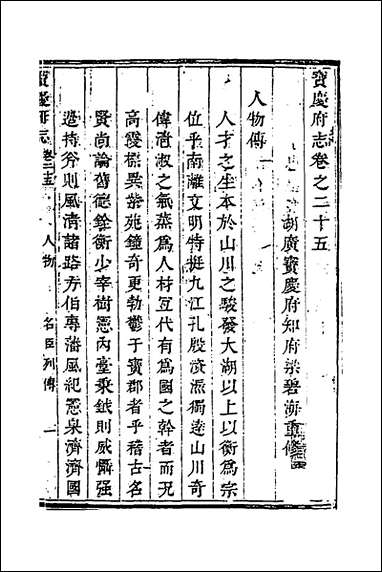 寶慶府志卷之二十五
湖廣寶慶府知府梁碧海重修
人物傳
人才之生本於山川之駿發大湖以上以衡為宗
位乎南離文明特挺九江孔殷資派獨遠山川奇
偉清淑之氣蒸為人材亙代有為國之幹者而况
高霞標異紫苑鐘奇更勃鬱于寶郡者乎稽古名
賢尚論舊德銓衡少宰樹憲內臺秉鉞則威懾强
邊持斧則風清諸路方伯專藩風紀憲臬濟濟國
寶慶府志
卷二十五
人物
名臣列傳
一